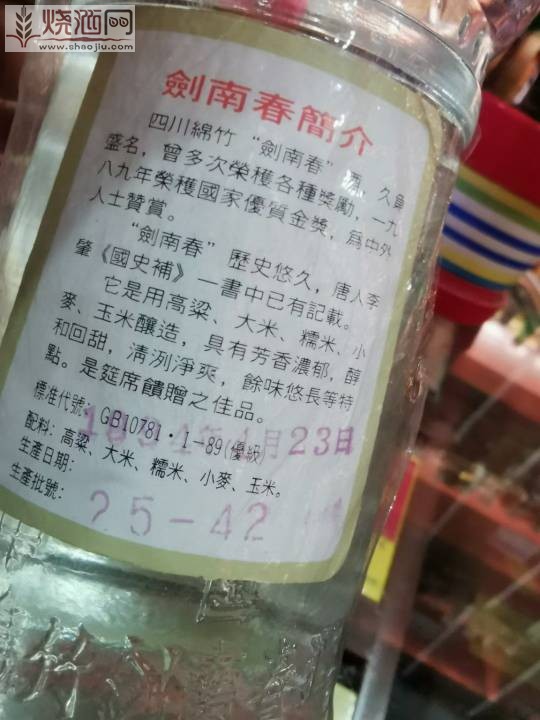 烧酒网
www.shaojiu.com
劍南春簡介
四川綿竹“劍南春”酒，久負
盛名，曾多次榮獲各種獎勵，一九
八九年榮獲國家優質金獎，爲中外
人士贊賞。
“劍南春”歷史悠久，唐人李
肇《國史補》一書中已有記載。
它是用高粱、大米、糯米、小
麥、玉米釀造，具有芳香濃郁，醇
和回甜，清洌淨爽，餘味悠長等特
點。是筵席饋贈之佳品。
標准代號：GB10781·1-89(優級)
配料：高粱、大米、糯米、小麥、玉米。
生產日期：
月23日
生產批號：
25-42